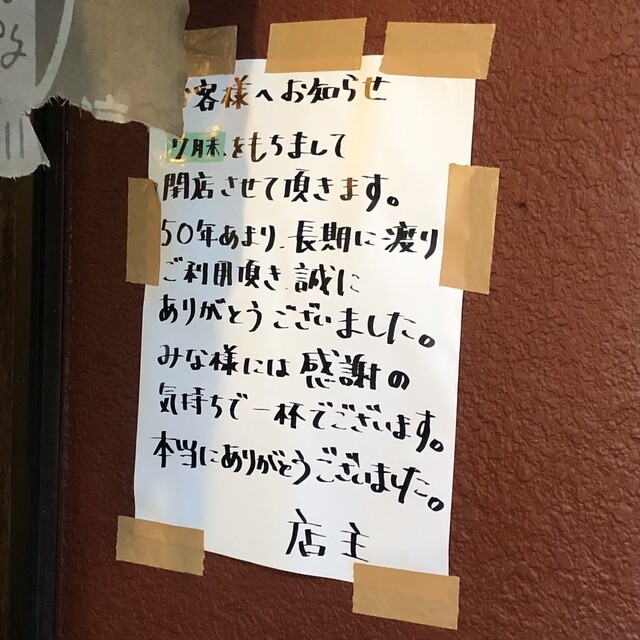 お客様へお知らせ
9月末をもちまして
閉店させて頂きます。
50年あまり、長期に渡り
ご利用頂き、誠に
ありがとうございました。
みな様には感謝の
気持ちで一杯でございます。
本当にありがとうございました。
店主